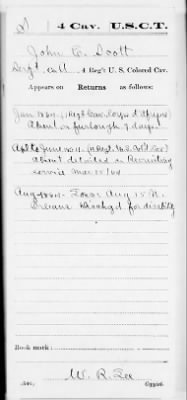 S 4 Cav. U.S.C.T.
John C. Scott
Serg't, Co. , 4 Reg't U. S. Colored Cav.
Appears on Returns as follows:
Jan 1864. (1 Regt Cav Corps d'Afrique)
Absent on furlough 7 days.
Apl to June 1864. (4 Regt U.S. Col'd Cav)
Absent detailed on Recruiting
service Mar 25/64
Aug 1864. Aug 15 N.
Orleans Dischgd for disability
Book mark:
W. R. Lee
Copyist.